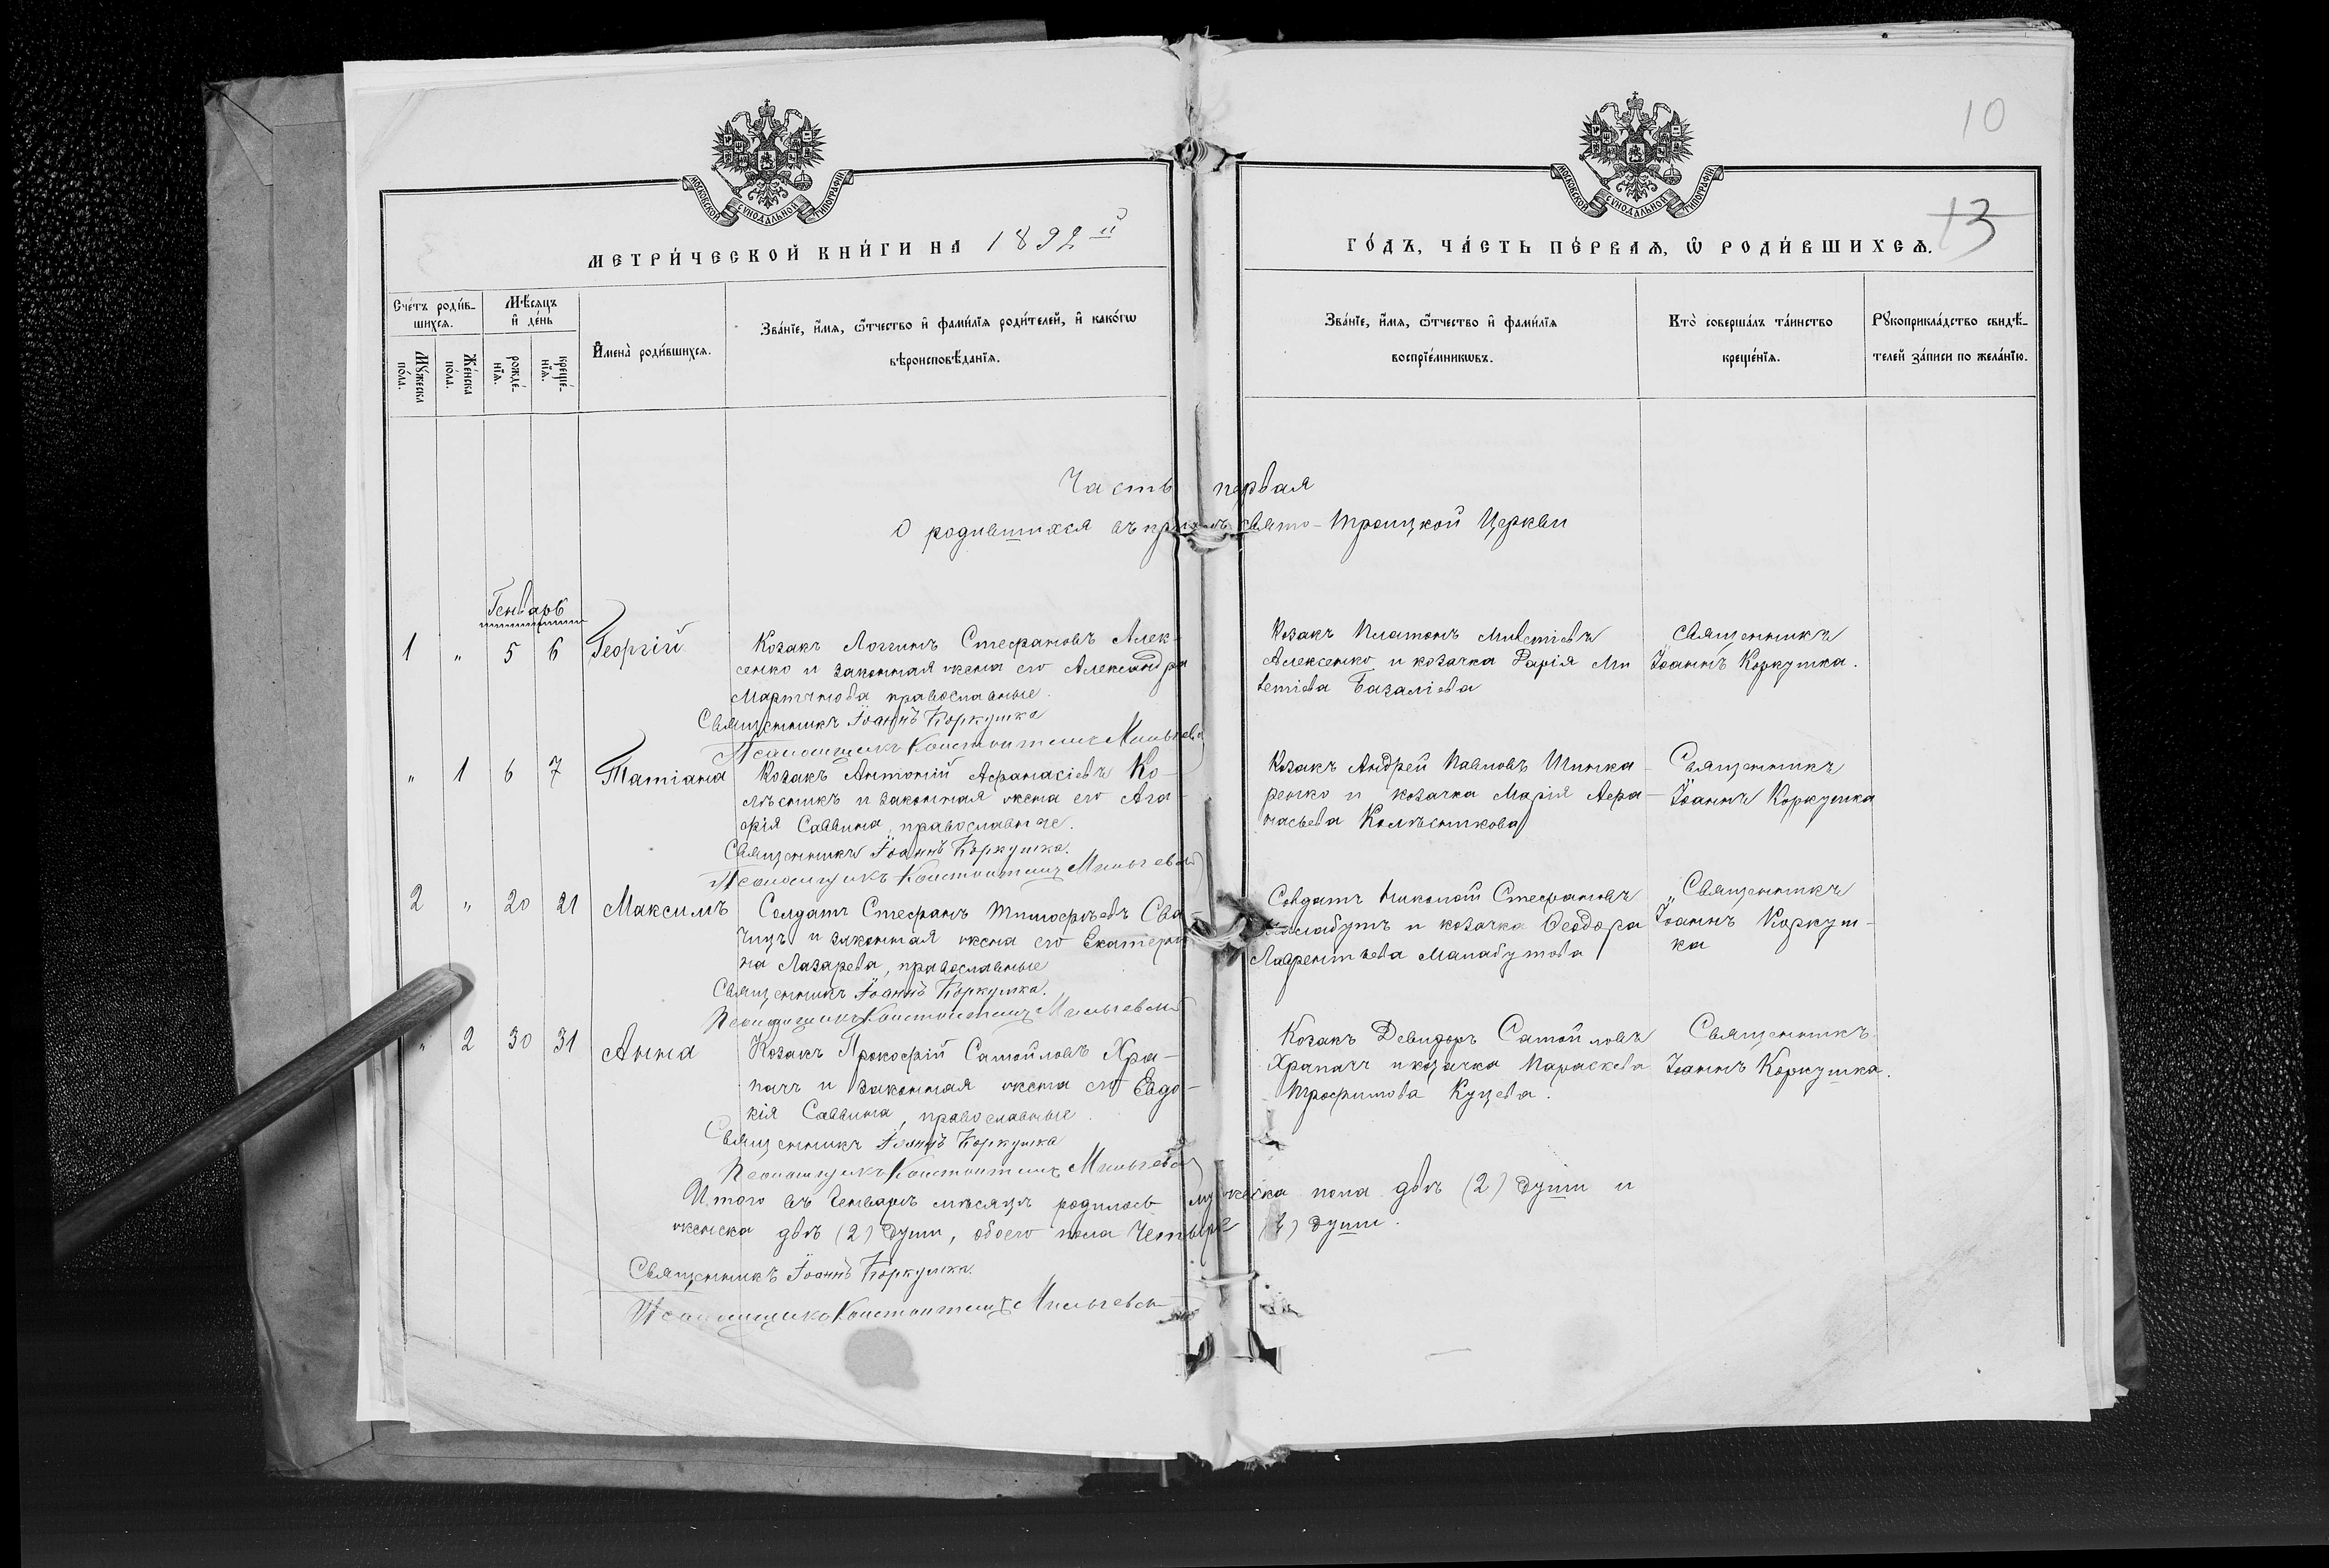 10
13
МОСКОВСКОЙ СУНОДАЛЬНОЙ ТИПОГРАФІИ
МОСКОВСКОЙ СУНОДАЛЬНОЙ ТИПОГРАФІИ
МЕТРИ́ЧЕСКОЙ КНИ́ГИ НА 1892й
ГО́ДЪ, ЧА́СТЬ ПЕ́РВАѦ, Ѡ҆ РОДИ́ВШИХСѦ.
Сче́тъ роди́в-
шихсѧ.
Мꙋ́жеска
по́ла.
Же́нска
по́ла.
Мѣ́сѧцъ
и҆ де́нь
рожде́-
нїѧ.
креще́-
нїѧ.
И҆мена̀ роди́вшихсѧ.
Зва́нїе, и҆́мѧ, ѻ҆́тчество и҆ фами́лїѧ роди́телей, и҆ како́гѡ
вѣроисповѣ́данїѧ.
Зва́нїе, и҆́мѧ, ѻ҆́тчество и҆ фами́лїѧ
воспрїе́мникѡвъ.
Кто̀ соверша́лъ та́инство
креще́нїѧ.
Рꙋкоприкла́дство свидѣ́-
телей за́писи по жела́нїю.
Часть первая
О родившихся въ приходѣ Свято-Троицкой Церкви
Генварь
1 " 5 6 Георгій
Козакъ Логгинъ Стефановъ Алек-
сенко и законная жена его Александра
Мартинова православные.
Священникъ Іоаннъ Коркушка
Псаломщикъ Константинъ
Козакъ Платонъ
Алексенко и козачка Дарія
Базаліева
Священникъ
Іоаннъ Коркушка.
" 1 6 7 Татіана
Козакъ Антоній Афанасіевъ Ко-
лѣсникъ и законная жена его Ага-
фія Саввина, православные.
Священникъ Іоаннъ Коркушка.
Псаломщикъ Константинъ
Козакъ Андрей Павловъ Шинка-
ренко и козачка Марія Афа-
насьева Колѣсникова
Священникъ
Іоаннъ Коркушка
2 " 20 21 Максимъ
Солдатъ Стефанъ Тимофѣевъ
и законная жена его Екатери-
на Лазарева, православные
Священникъ Іоаннъ Коркушка.
Псаломщикъ Константинъ
Солдатъ Николай Стефановъ
и козачка Феодора
Лаврентьева Малабутова
Священникъ
Іоаннъ Коркуш-
ка
" 2 30 31 Анна
Козакъ Прокофій Самойловъ Хра-
пачъ и законная жена его Евдо-
кія Саввина, православные.
Священникъ Іоаннъ Коркушка
Псаломщикъ Константинъ
Козакъ Самойловъ
Храпачъ и козачка Параскева
Трофимова Куцева.
Священникъ
Іоаннъ Коркушка.
Итого въ Генварѣ мѣсяцѣ родилось мужеска пола двѣ (2) души и
женска двѣ (2) души, обоего пола четыре (4) души.
Священникъ Іоаннъ Коркушка.
Псаломщикъ Константинъ